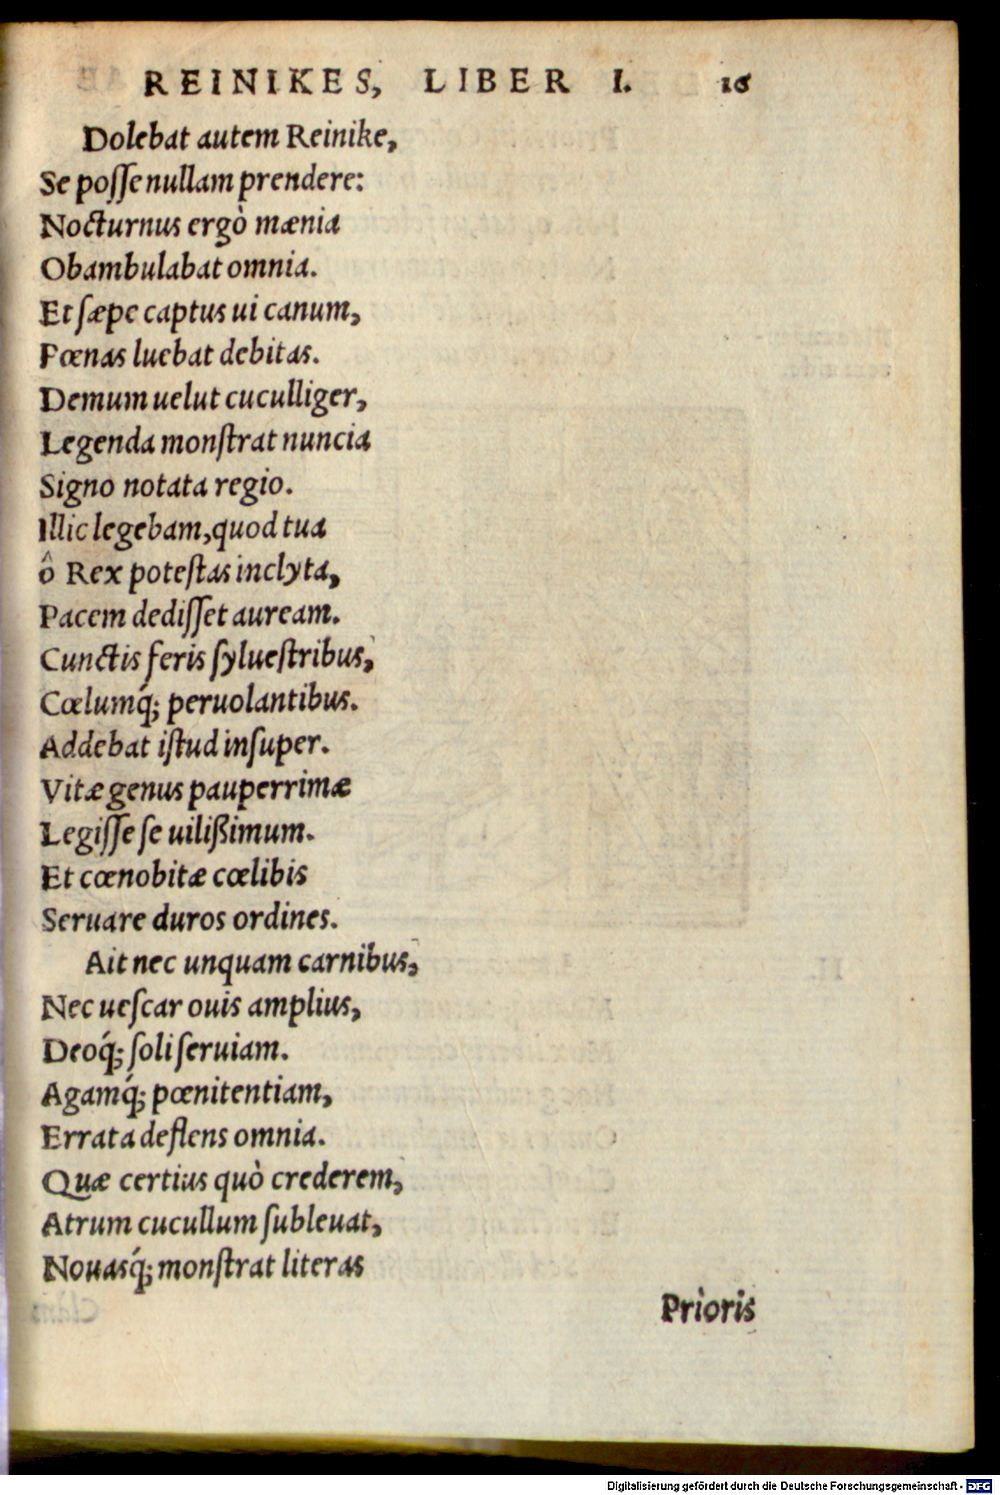 REINIKES, LIBER I. 16
Dolebat autem Reinike,
Se posſe nullam prendere:
Nocturnus ergò mænia
Obambulabat omnia.
Et ſæpe captus ui canum,
Pœnas luebat debitas.
Demum uelut cuculliger,
Legenda monſtrat nuncia
Signo notata regio.
Illic legebam, quod tua
ô Rex poteſtas inclyta,
Pacem dediſſet auream.
Cunctis feris ſylueſtribus,
Cœlumq́; peruolantibus.
Addebat iſtud inſuper.
Vitæ genus pauperrimæ
Legiſſe ſe uilißimum.
Et cœnobitæ cœlibis
Seruare duros ordines.
Ait nec unquam carnibus,
Nec ueſcar ouis amplius,
Deoq́; ſoli ſeruiam.
Agamq́; pœnitentiam,
Errata deflens omnia.
Quæ certius quò crederem,
Atrum cucullum ſubleuat,
Nouasq́; monſtrat literas
Prioris
Digitalisierung gefördert durch die Deutsche Forschungsgemeinschaft - DFG